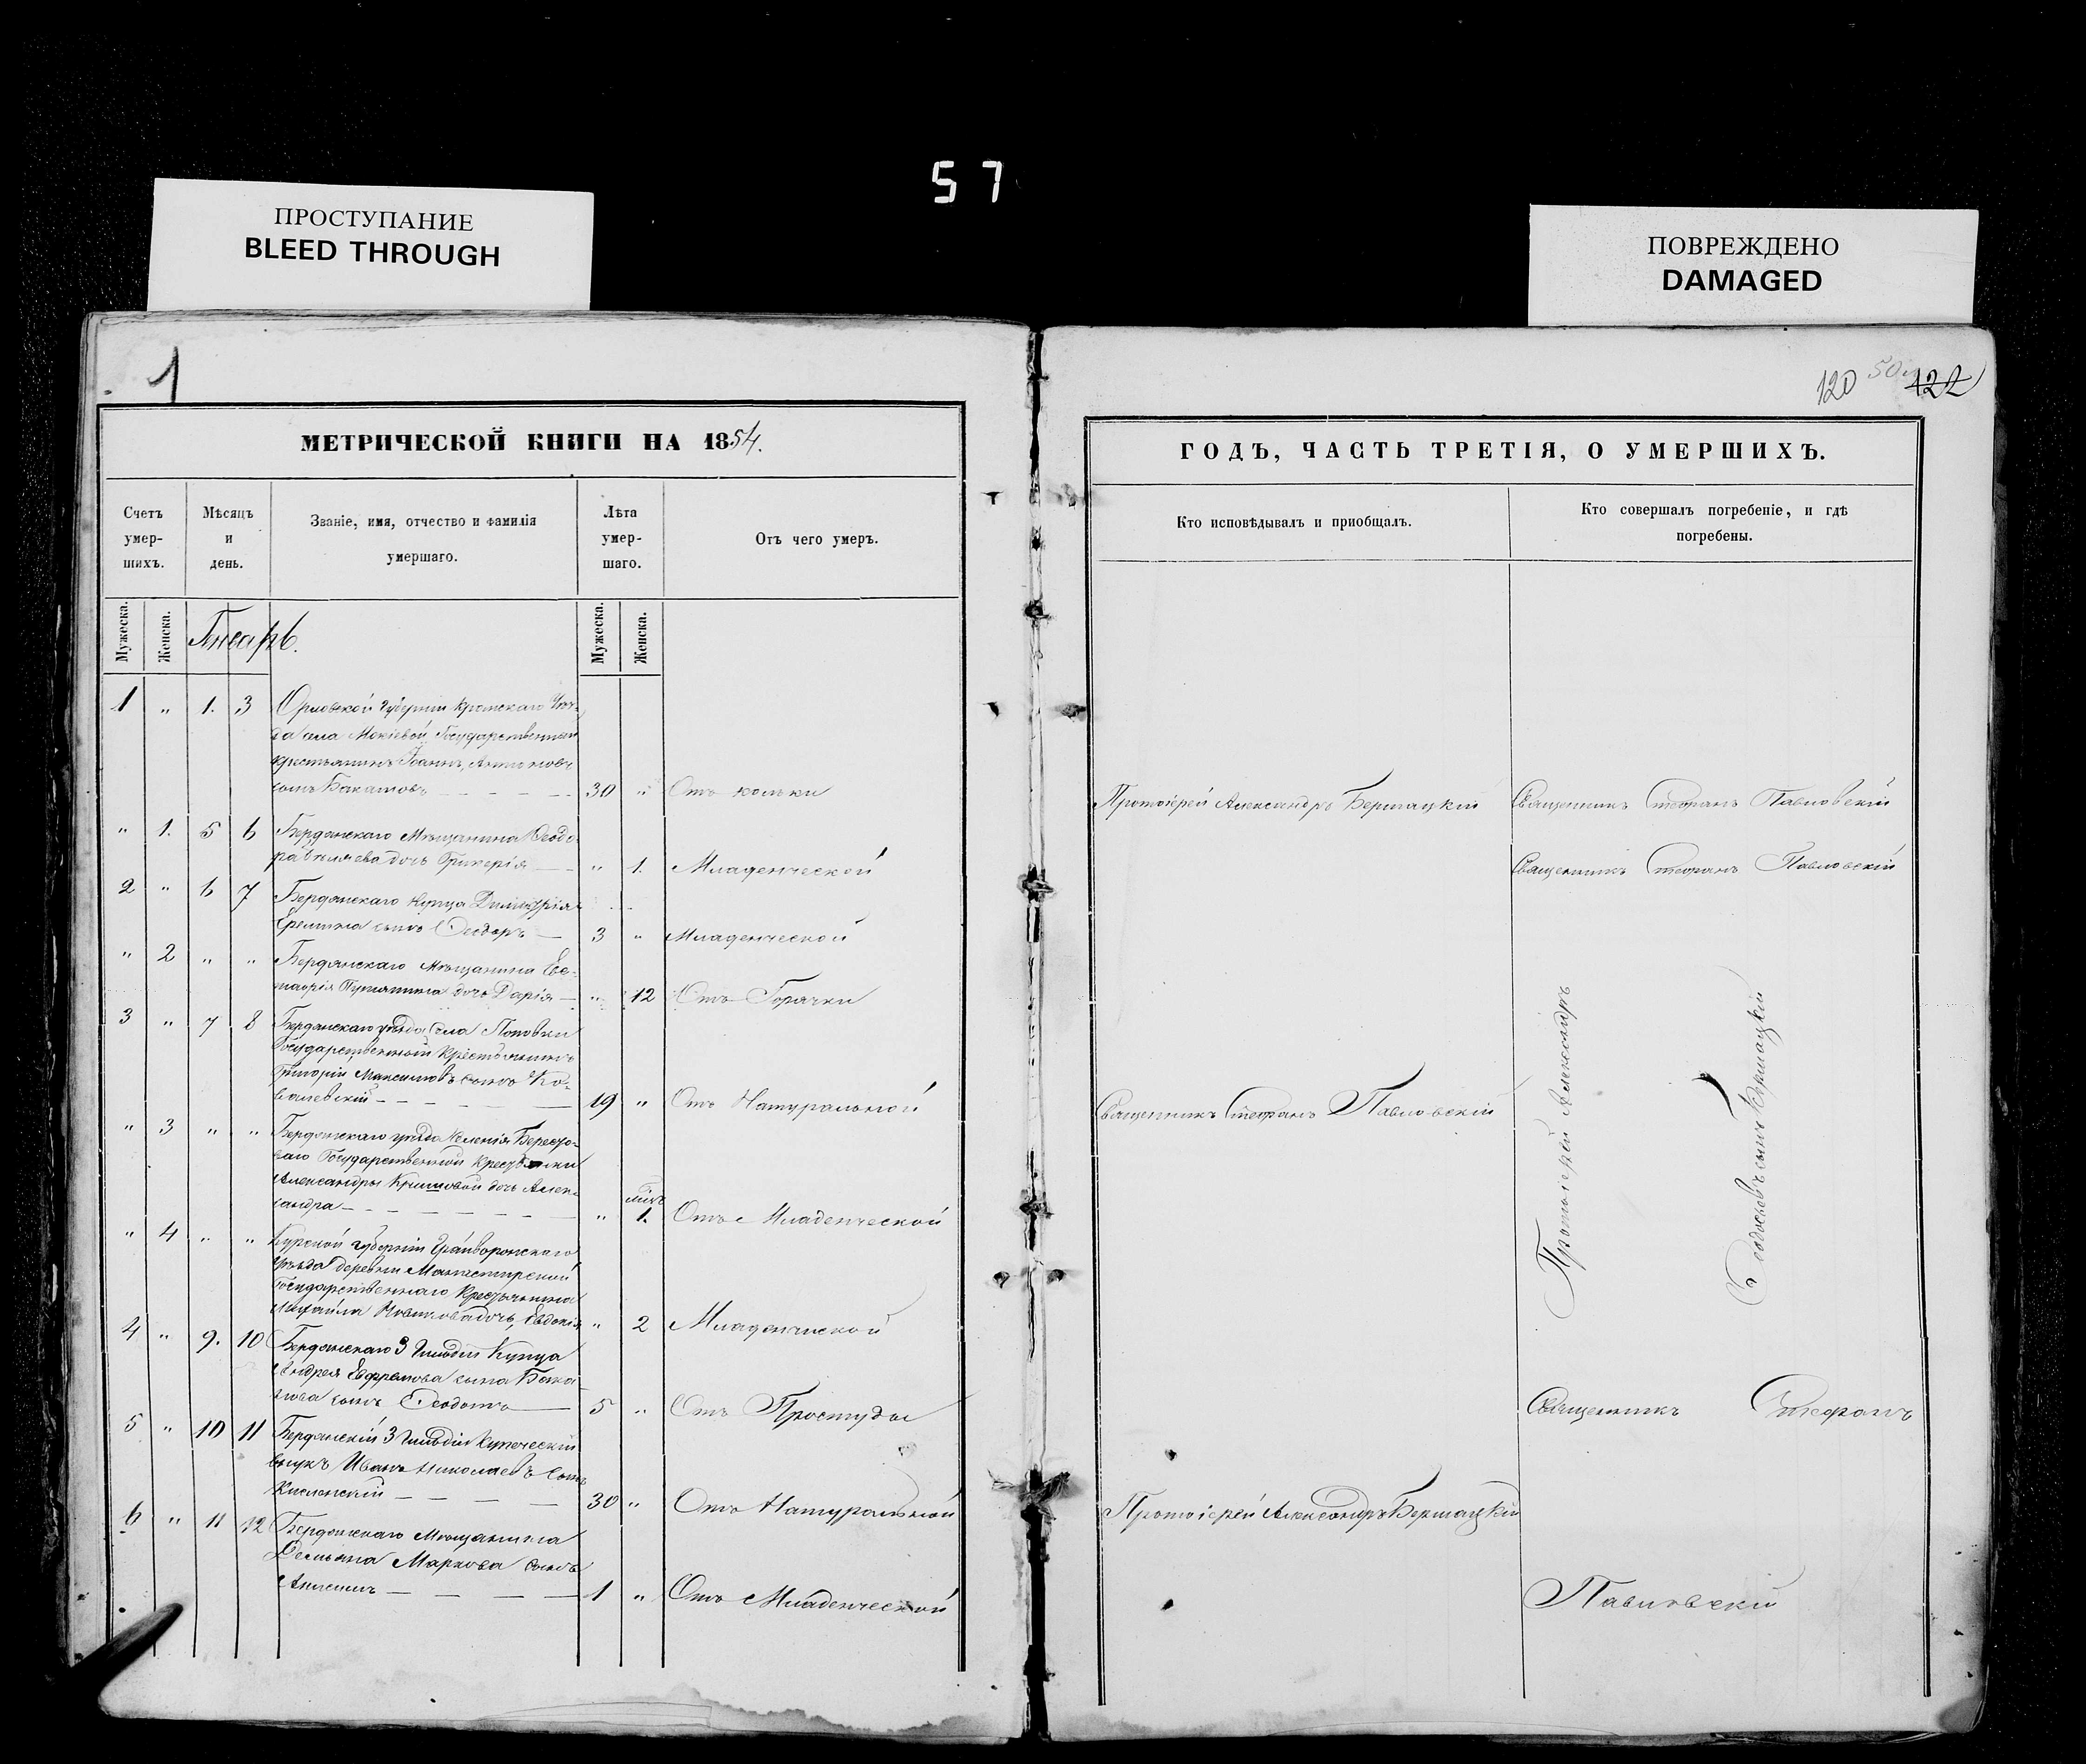 57
ПРОСТУПАНИЕ
BLEED THROUGH
ПОВРЕЖДЕНО
DAMAGED
1
МЕТРИЧЕСКОЙ КНИГИ НА 1854.
Счетъ умер-шихъ.
Мѣсяцъ и день.
Званіе, имя, отчество и фамилія умершаго.
Лѣта умер-шаго.
Отъ чего умеръ.
Мужеска.
Женска.
Январь.
Мужеска.
Женска.
1 " 1. 3 Орловской Губерніи Кромскаго Уѣз-
да села Государственный
крестьянинъ Іоаннъ, Антоновъ
сынъ 30 " Отъ кольки
" 1. 5 6 Бердянскаго Мѣщанина Ѳеодо-
ра дочь Гликерія " 1. Младенческой
2 " 6 7 Бердянскаго Купца Димитрія
Еремина сынъ Ѳеодоръ 3 " Младенческой
" 2 " " Бердянскаго Мѣщанина Ев-
дочь Дарія " 12 Отъ Горячки
3 " 7 8 Бердянскаго уѣзда Села Поповки
Государственный Крестьянинъ
Григорій Максимовъ сынъ Ко-
валевскій 19 " Отъ Натуральной
" 3 " " Бердянскаго уѣзда Селенія Бересто-
ваго Государственной Крестьянки
Александры дочь Алек-
сандра " 1. Отъ Младенческой
" 4 " " Курской губерніи Грайворонскаго
Уѣзда деревни
Государственнаго Крестьянина
Михаила Новикова дочь, Евдокія " 2 Младенческой
4 " 9. 10 Бердянскаго 3 Гильдіи Купца
Андрея Ефремова сына Бака-
лова сынъ Ѳеодотъ 5 " Отъ Простуды
5 " 10 11 Бердянскій 3 Гильдіи Купеческій
внукъ Иванъ Николаевъ Сынъ
30 " Отъ Натуральной
6 " 11 12 Бердянскаго Мѣщанина
Демьяна Маркова сынъ
1 " Отъ Младенческой
120 122
ГОДЪ, ЧАСТЬ ТРЕТІЯ, О УМЕРШИХЪ.
Кто исповѣдывалъ и пріобщалъ.
Кто совершалъ погребеніе, и гдѣ
погребены.
Протоіерей Александръ Бершацкій Священникъ Стефанъ Павловскій
Священникъ Стефанъ Павловскій
Протоіерей Александръ
Бершацкій
Священникъ Стефанъ Павловскій
Священникъ Стефанъ
Протоіерей Александръ Бершацкій
Павловскій